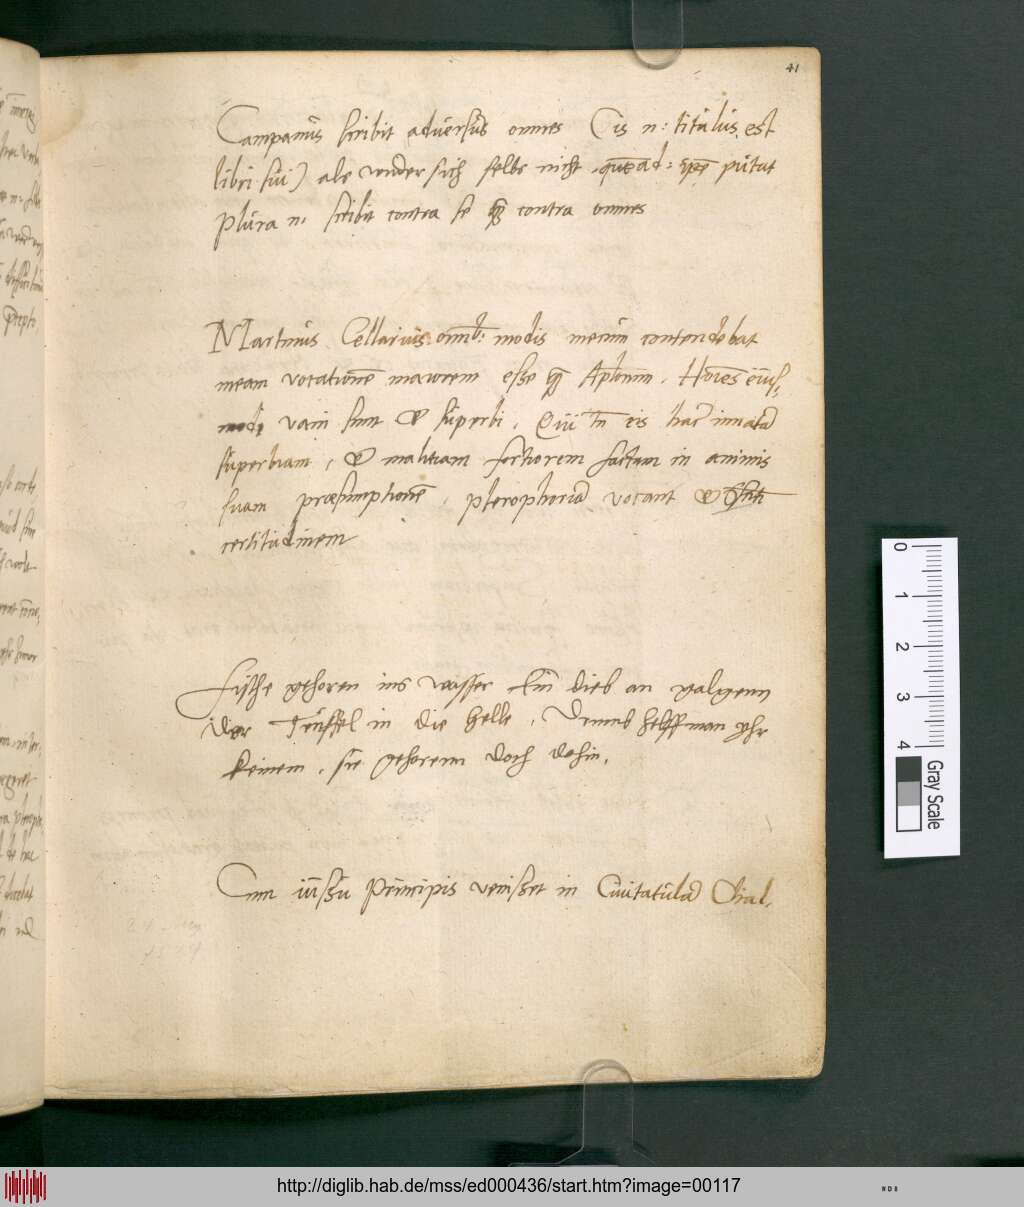 41
Campanus scribit adversus omnes (is n: titulus est
libri sui) ale wnder sich selbs nicht quead: ipse putat
plura n. scribit contra se qz contra omnes
Martinus Cellarius omnib: modis mecum contendebat
meam vocationem maiorem esse qz Aplorum. Hoies eius-
modi vani sunt & superbi. Qui tn eis hac innata
superbiam, & malitiam fortiorem factam in animis
suam præsumptionem, plerophoria vocant &
certitudinem
Fische gehoren ins wasser Ein dieb an galgenn
Der Teuffel in die helle, Drumb helff man yhr
keinem, sie gehorenn doch dohin.
Cum iussu Principis venisset in Civitatula Hal,
0
1
2
3
4
Gray Scale
http://diglib.hab.de/mss/ed000436/start.htm?image=00117